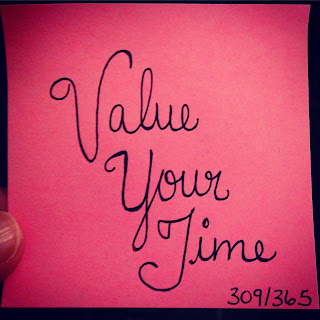 Value
Your
Time
309/365